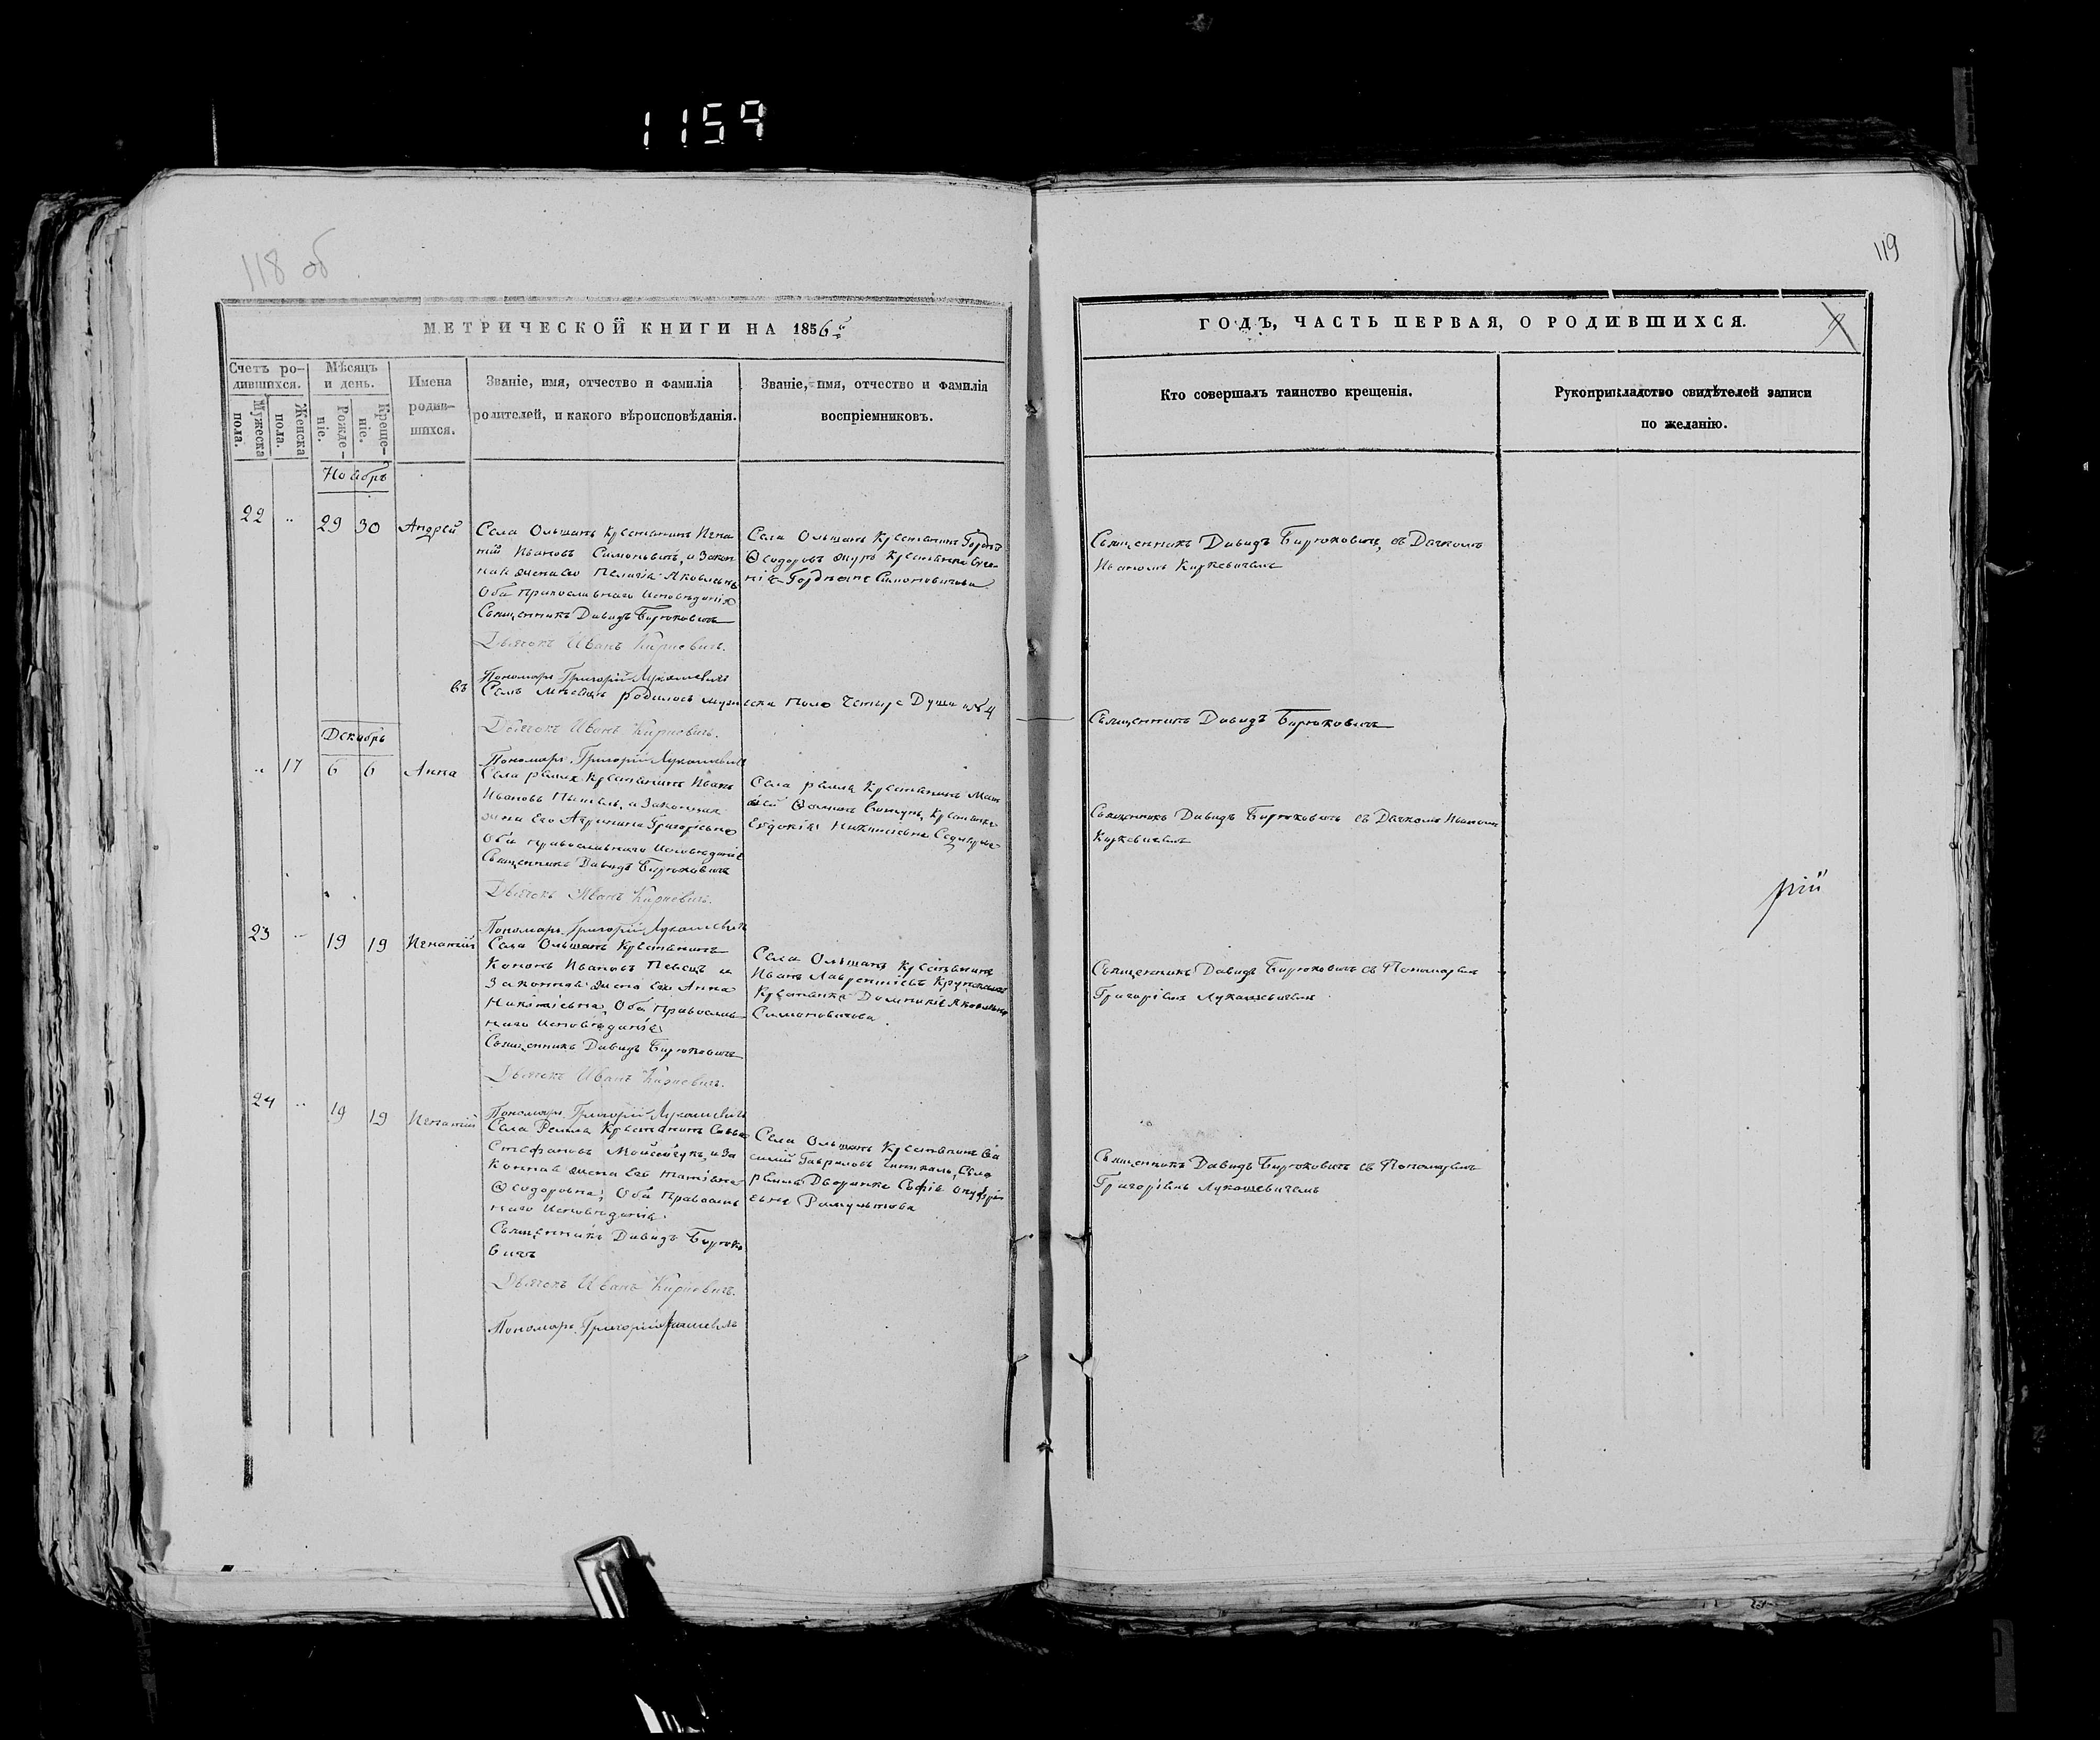 1159
118 об
119
МЕТРИЧЕСКОЙ КНИГИ НА 1856
ГОДЪ, ЧАСТЬ ПЕРВАЯ, О РОДИВШИХСЯ.
9
Счетъ ро-
дившихся.
Мужеска
пола.
Женска
пола.
Мѣсяцъ
и день.
Рожде-
ніе.
Креще-
ніе.
Имена
родив-
шихся.
Званіе, имя, отчество и фамилія
родителей, и какого вѣроисповѣданія.
Званіе, имя, отчество и фамилія
воспріемниковъ.
Кто совершалъ таинство крещенія.
Рукоприкладство свидѣтелей записи
по желанію.
Ноябрь
22
29
30
Андрей
Села Ольшанъ Крестьянинъ Игна
тій Ивановъ Симоновичъ, и Закон
ная жена его Пелагія Яковлевна
Оба Православнаго Исповѣданія
Священникъ Давидъ Бирюковичъ
Дьячокъ Иванъ Киркевичъ.
Пономарь Григорій Лукашевичъ
Села Ольшанъ Крестьянинъ Гордѣй
Ѳеодоровъ Крестьянка
Гордѣева Симоновичова
Священникъ Давидъ Бирюковичъ, съ Дячкомъ
Иваномъ Киркевичемъ
въ Семъ Мѣсяцѣ родилось мужеска полу Четыре Души №4
Дьячокъ Иванъ Киркевичъ.
Пономарь Григорій Лукашевичъ
Священникъ Давидъ Бирюковичъ
Декабрь
17
6
6
Анна
Села Крестьянинъ Иванъ
Ивановъ и Законная
жена Его Григорьевна
Оба Православнаго Исповѣданія
Священникъ Давидъ Бирюковичъ
Дьячокъ Иванъ Киркевичъ.
Пономарь Григорій Лукашевичъ
Села Крестьянинъ Мат
вѣй Крестьянка
Евдокія
Священникъ Давидъ Бирюковичъ съ Дячкомъ Иваномъ
Киркевичемъ
рій
23
19
19
Игнатій
Села Ольшанъ Крестьянинъ
Кононъ Ивановъ Певецъ и
Законная жена его Анна
Никитіевна, Оба Православ
наго Исповѣданія
Священникъ Давидъ Бирюковичъ
Дьячокъ Иванъ Киркевичъ.
Пономарь Григорій Лукашевичъ
Села Ольшанъ Крестьянинъ
Иванъ Лаврентіевъ
Крестьянка Домникія Яковлевна
Симоновичова
Священникъ Давидъ Бирюковичъ съ Пономаремъ
Григоріемъ Лукашевичемъ
24
19
19
Игнатій
Села Крестьянинъ Савва
Стефановъ Мойсейчукъ, и За
конная жена Его Татіана
Ѳеодоровна, Оба Православ
наго Исповѣданія.
Священникъ Давидъ Бирюко
вичъ
Дьячокъ Иванъ Киркевичъ.
Пономарь Григорій Лукашевичъ
Села Ольшанъ Крестьянинъ Ва
силій Гавриловъ Села
Дворянка Софія Онуфрі
евна
Священникъ Давидъ Бирюковичъ съ Пономаремъ
Григоріемъ Лукашевичемъ